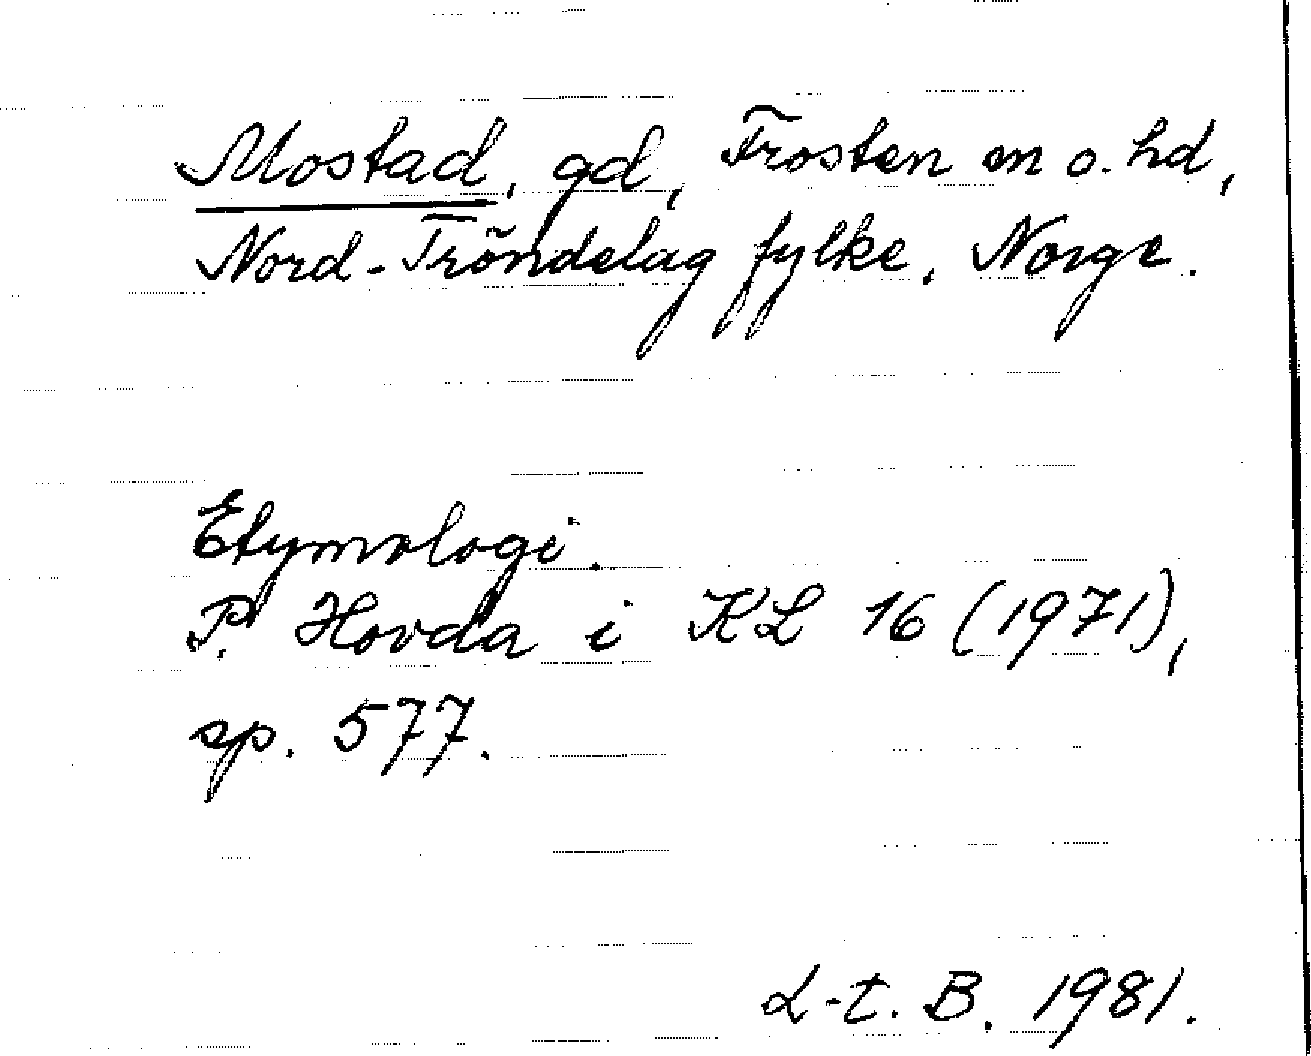 Mostad, gd, Frosten sn o. hd,
Nord-Tröndelag fylke, Norge.
Etymologi.
P. Hovda i KL 16 (1971),
sp. 577.
L-t. B. 1981.